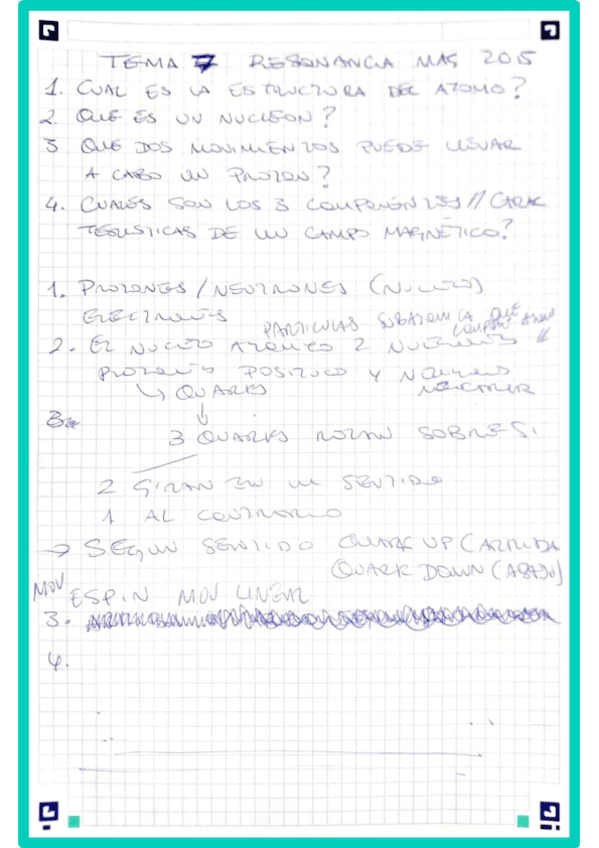 TEMA 7 RESONANCIA MAG 205
1. CUAL ES LA ESTRUCTURA DEL ATOMO?
2. QUE ES UN NUCLEON?
3 QUE DOS MOVIMIENTOS PUEDE LLEVAR
A CABO UN PROTON?
4. CUALES SON LOS 3 COMPONENTES // CARAC
TERISTICAS DE UN CAMPO MAGNÉTICO?
1. PROTONES / NEUTRONES (NUCLEO)
ELECTRONES
PARTICULAS SUBATOMICA QUE
COMPONEN
2. EL NUCLEO ATOMICO 2 NUCLEONES
PROTONES POSITIVO Y NEUTRONES
QUARKS
3 QUARKS ROTAN SOBRE SI
2 GIRAN EN UN SENTIDO
1 AL CONTRARIO
→ SEGUN SENTIDO QUARK UP (ARRIBA
QUARK DOWN (ABAJO)
MOV
ESPIN MOV LINEAL
3.
4.